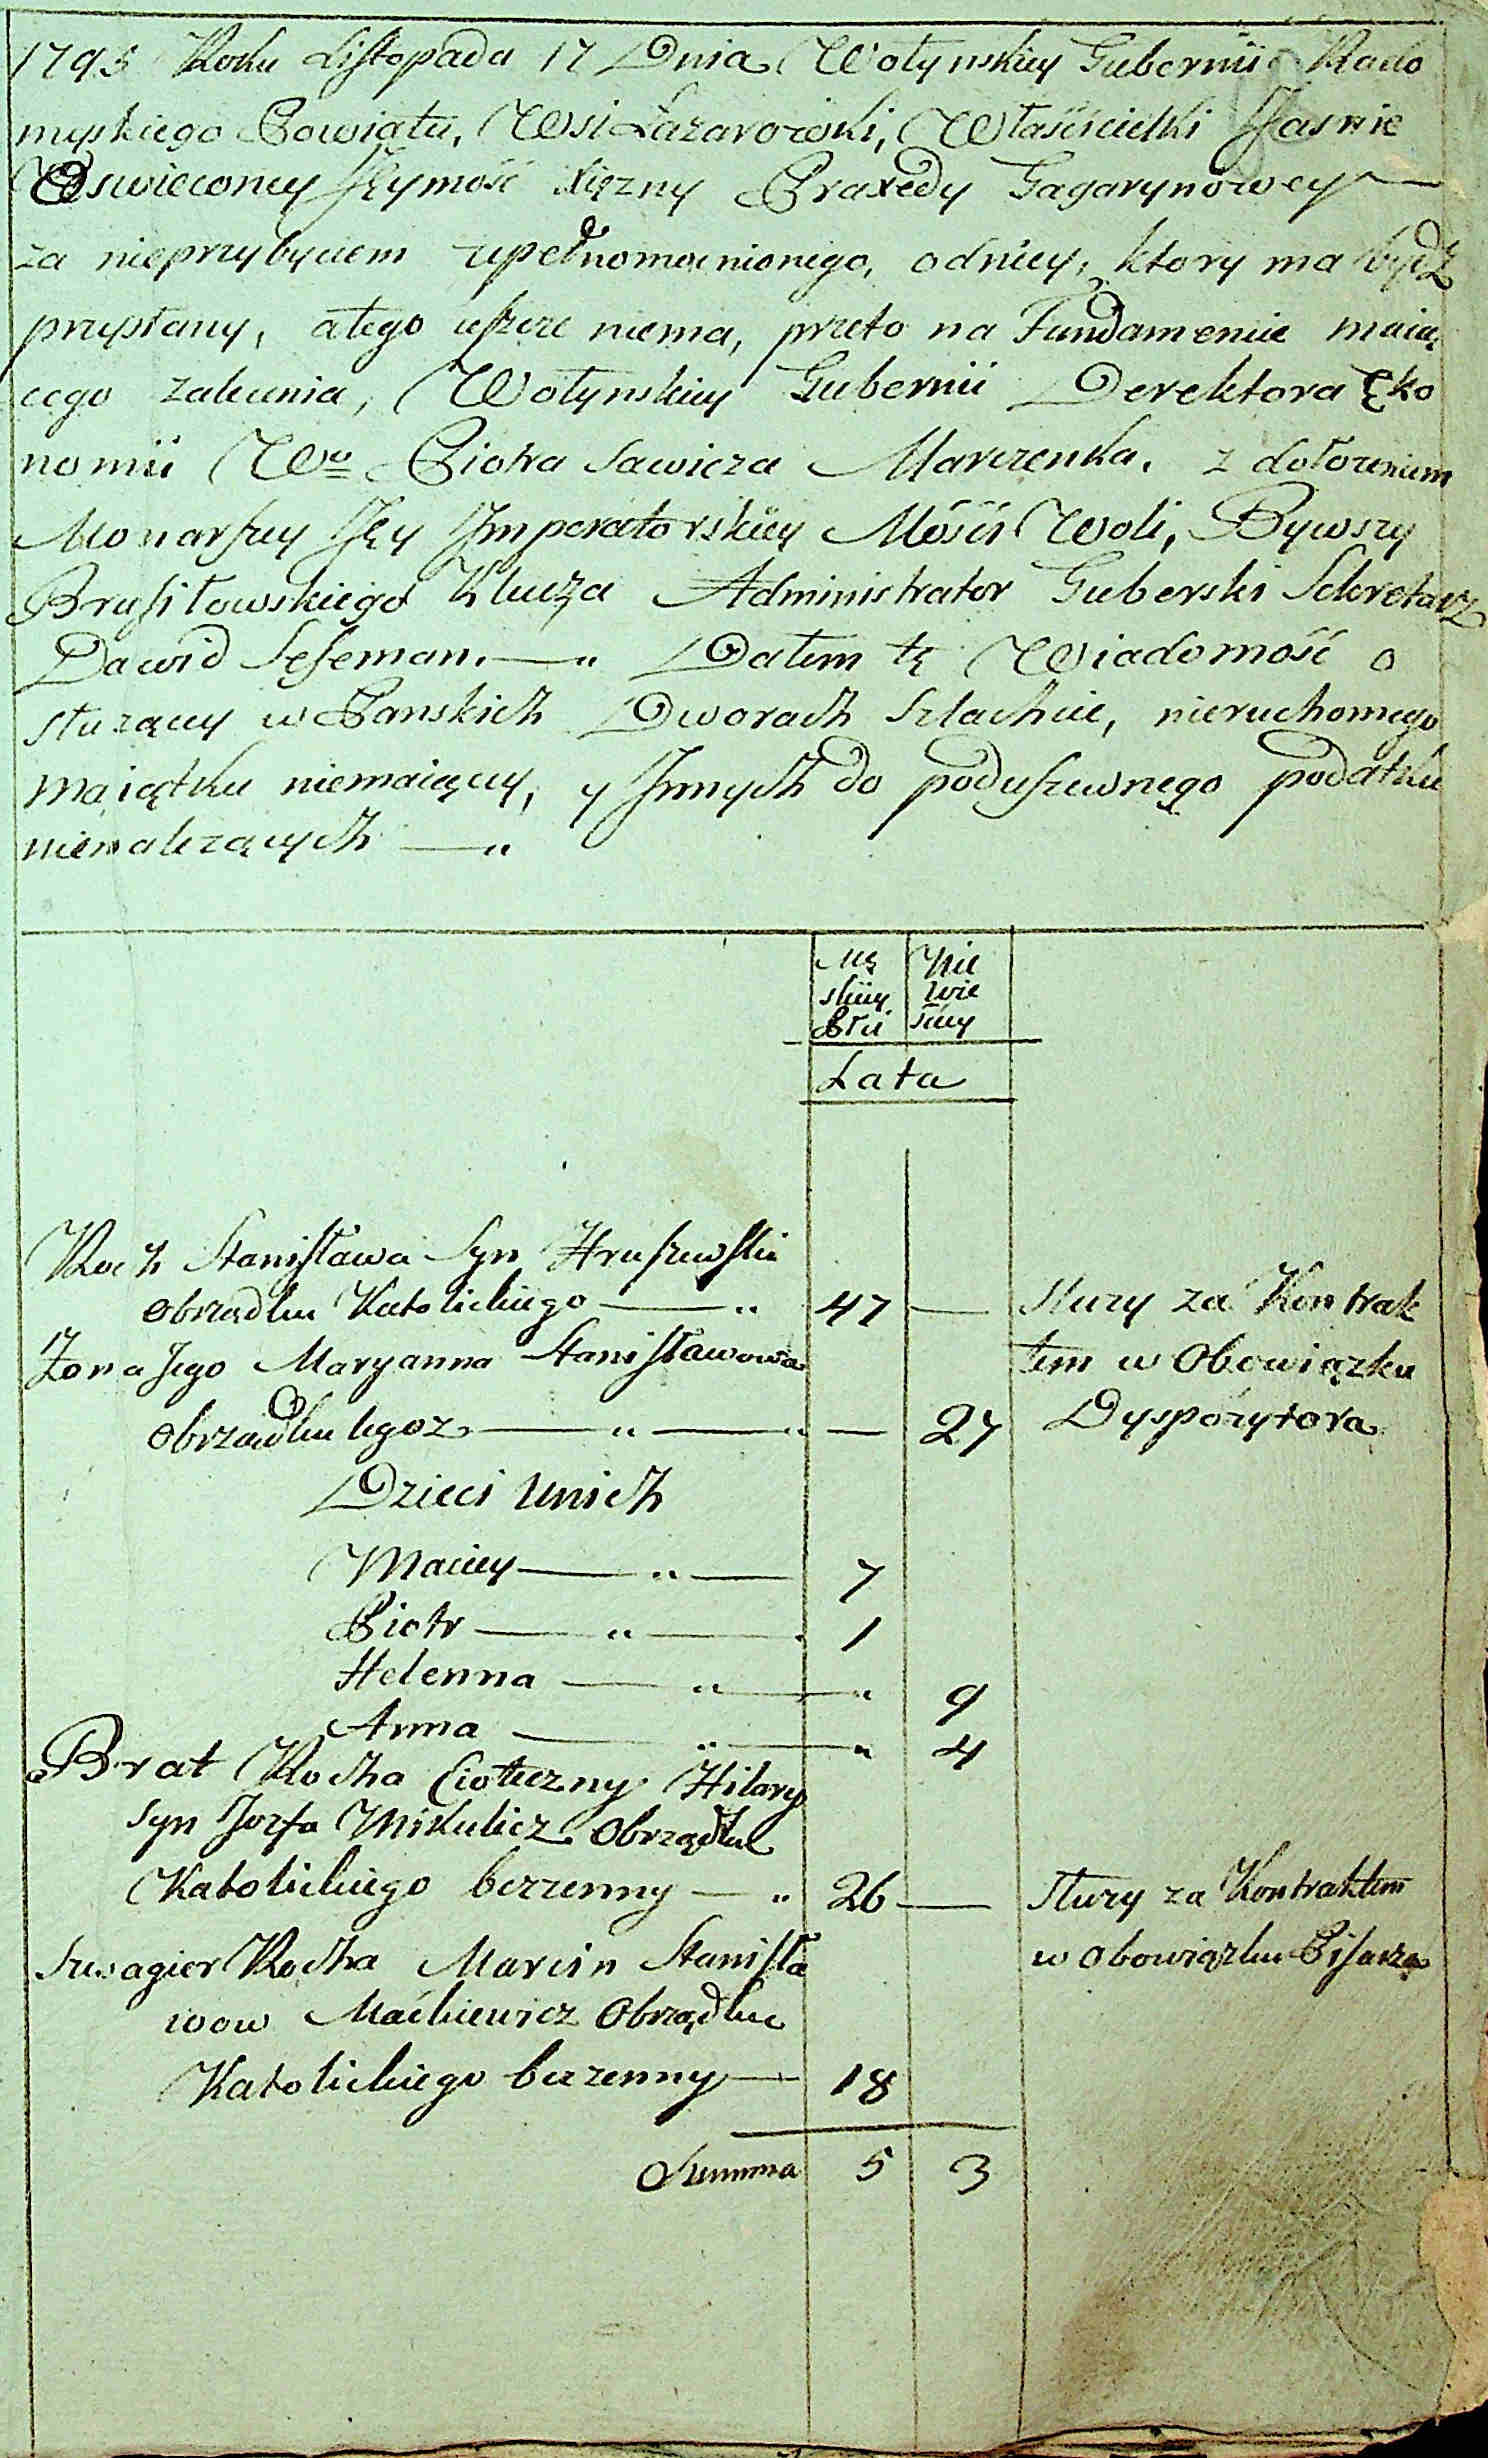 1795 Roku Listopada 17 Dnia Wołynskiey Gubernii Rado
myskiego Powiatu, Wsi Łazarowki, Właścicielki Jasnie
Oswieconey Jeymość Xięzny Praxedy Gagarynowey —
za nieprzybyciem upełnomocnionego, odniey, ktory ma bydź
przysłany, atego ieszcze niema, przeto na Fundamencie maią
cego zalecenia, Wołynskiey Gubernii Derektora Eko
nomii Wo Piotra Sawicza Marczenka, z dołozeniem
Monarszey Jey Imperatorskiey Mości Woli, Bywszy
Brusiłowskiego Klucza Administrator Guberski Sekretarz
Dawid Seseman. — „ Dałem tę Wiadomość o
słuzącey w Panskich Dworach Szlachcie, nieruchomego
maiątku niemaiącey, y Innych do poduszewnego podatku
nienalezących — „
Mę Nie
skiey wie
Płci sciey
Lata
Roch Stanisława Syn Hruszewski
Obrządku Katolickiego — „ 47 — Słuzy za Kontrak
Zona Jego Maryanna Stanisławowa tem w Obowiązku
Obrządku tegoz — „ — „ — 27 Dyspozytora
Dzieci unich
Maciey — „ — 7
Piotr — „ — 1
Helenna — „ — „ 9
Anna — „ — „ 4
Brat Rocha Cioteczny Hilary
syn Jozfa Mikulicz Obrządku
Katolickiego bezzenny — „ 26 — Słuzy za Kontraktem
Szwagier Rocha Marcin Stanisła w obowiązku Pisarza
wow Maćkiewicz Obrządku
Katolickiego bezzenny — 18
Summa 5 3